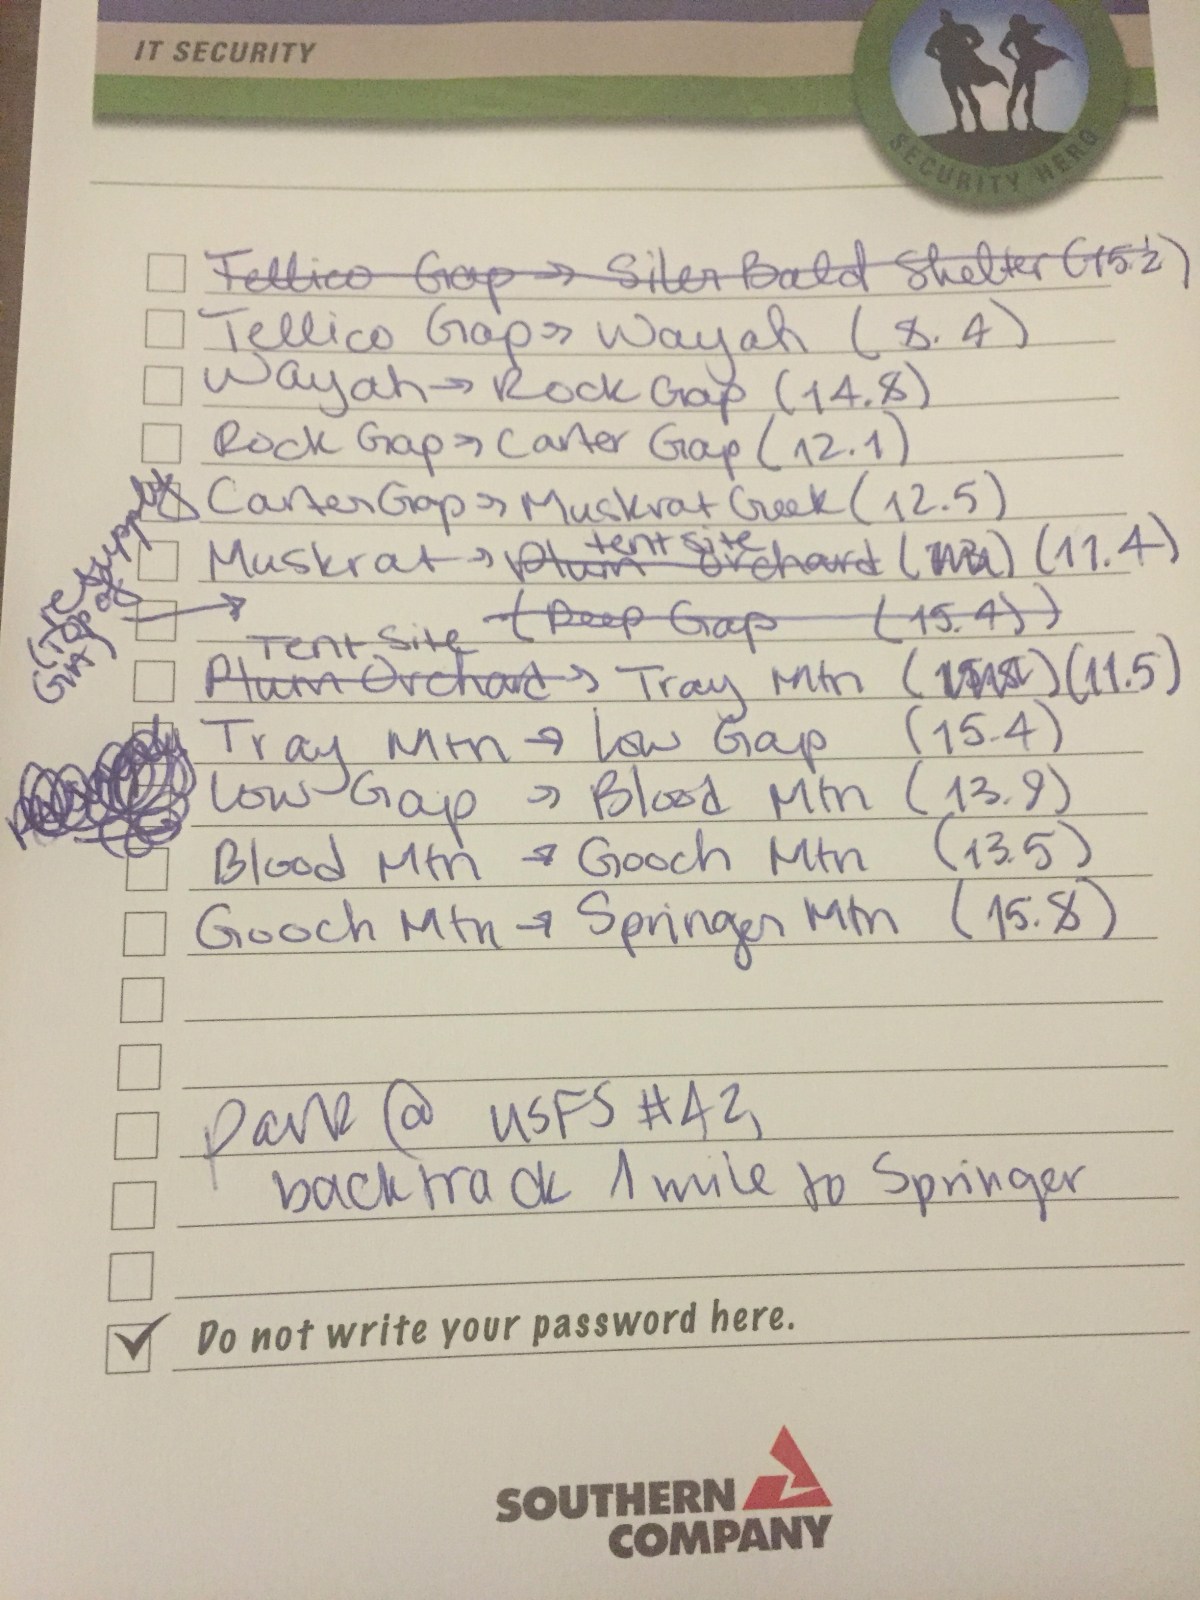 IT SECURITY
SECURITY HERO
Tellico Gap → Siler Bald Shelter (15.2)
Tellico Gap → Wayah (8.4)
Wayah → Rock Gap (14.8)
Rock Gap → Carter Gap (12.1)
Carter Gap → Muskrat Creek (12.5)
tent site
Muskrat → Plum Orchard (11.4)
resupply
(Top of
GA)
→ (Deep Gap (15.4))
Tent Site
Plum Orchard → Tray Mtn (11.5)
Tray Mtn → Low Gap (15.4)
Low Gap → Blood Mtn (13.9)
Blood Mtn → Gooch Mtn (13.5)
Gooch Mtn → Springer Mtn (15.8)
Park @ USFS #42,
backtrack 1 mile to Springer
Do not write your password here.
SOUTHERN
COMPANY